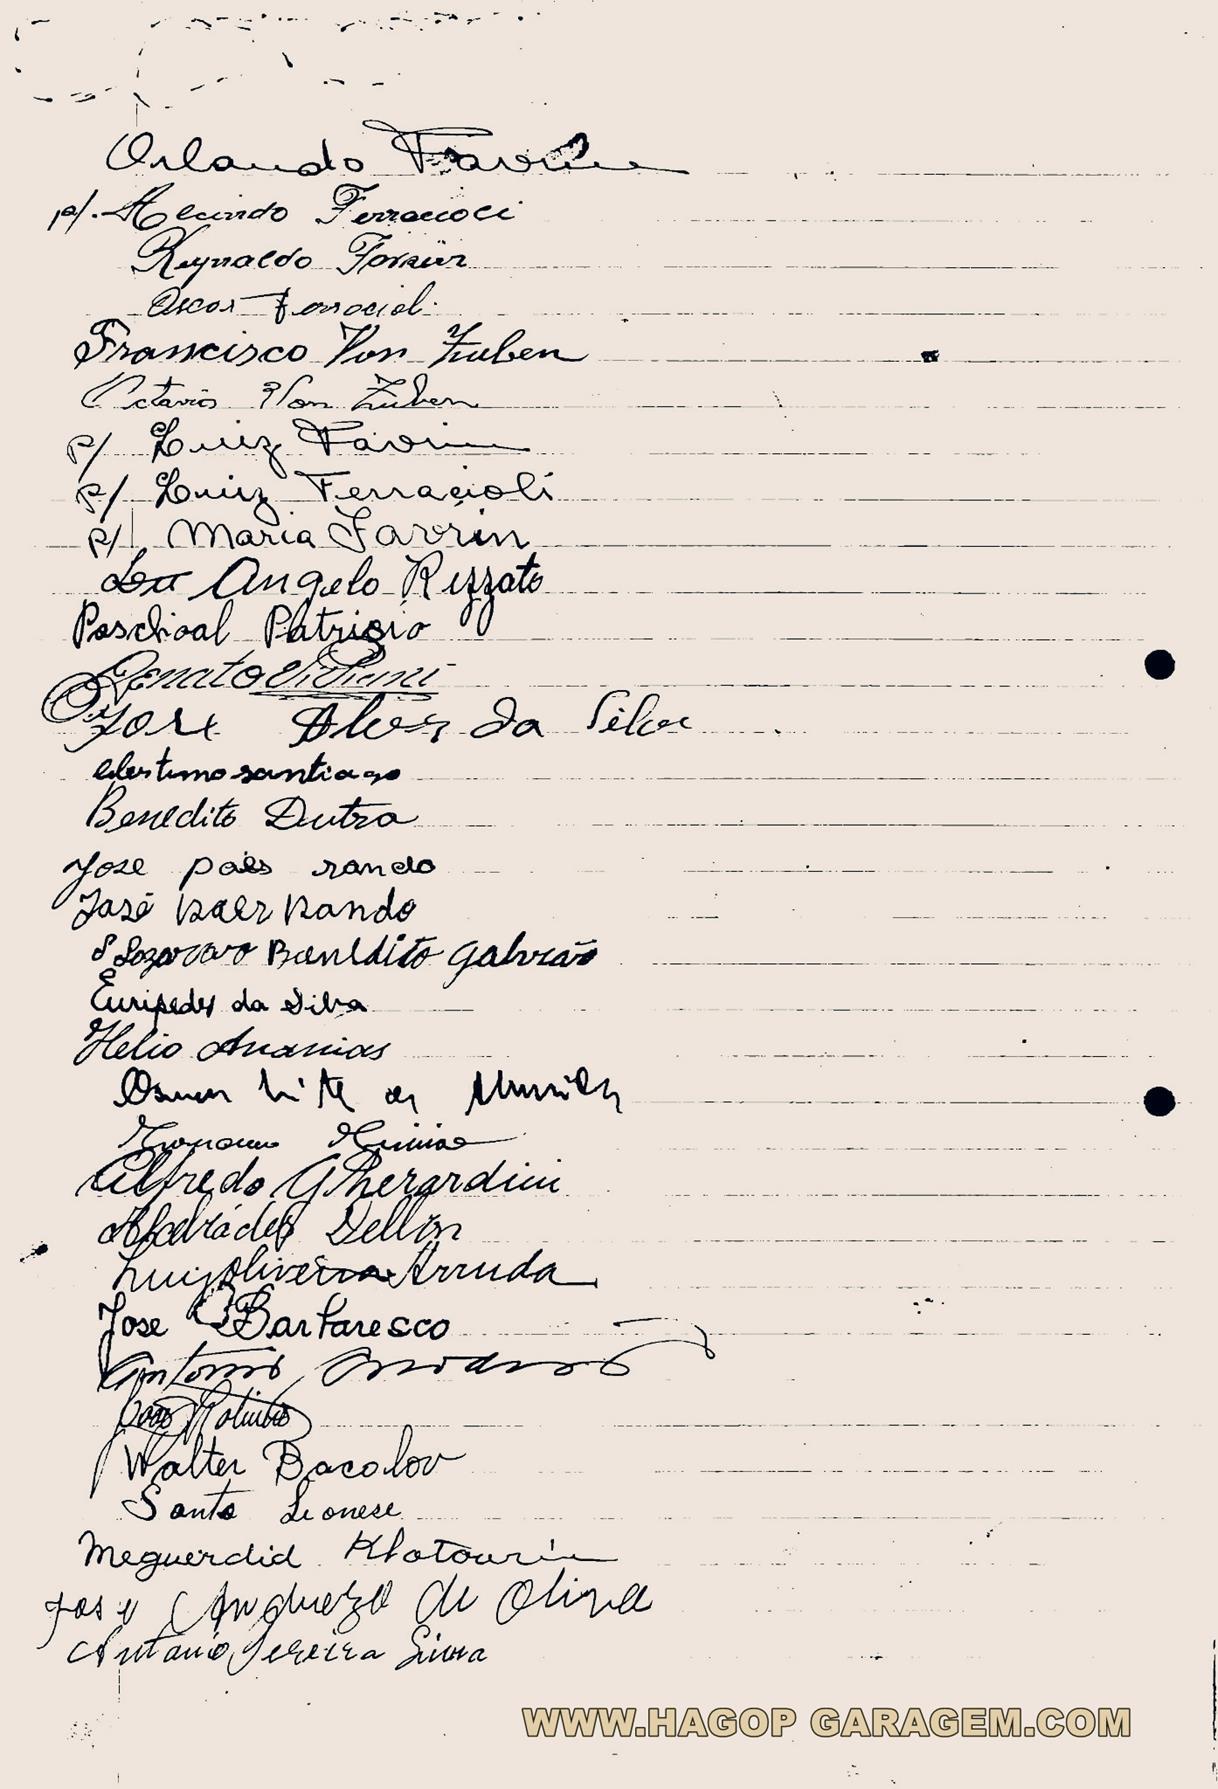 Orlando Favrin
p/. Alcindo Ferracioli
Reynaldo
Oscar Ferracioli
Francisco Von Zuben
Octavio Von Zuben
p/ Luiz Favrin
p/ Luiz Ferracioli
p/ Maria Favrin
Angelo Rizzato
Paschoal Patrizio
Renato
Jose Alves da Silva
santiago
Benedito Dutra
Jose paes rando
José Rando
Benedito galvão
Euripedes da Silva
Helio Ananias
Alfredo Gherardini
Dellin
Luiz Oliveira Arruda
Jose Barbaresco
Antonio
João
Walter Bacolov
Santo Leonese
Meguerdid Khatourin
Jose de Olivea
Antonio Pereira Lima
WWW.HAGOP GARAGEM.COM